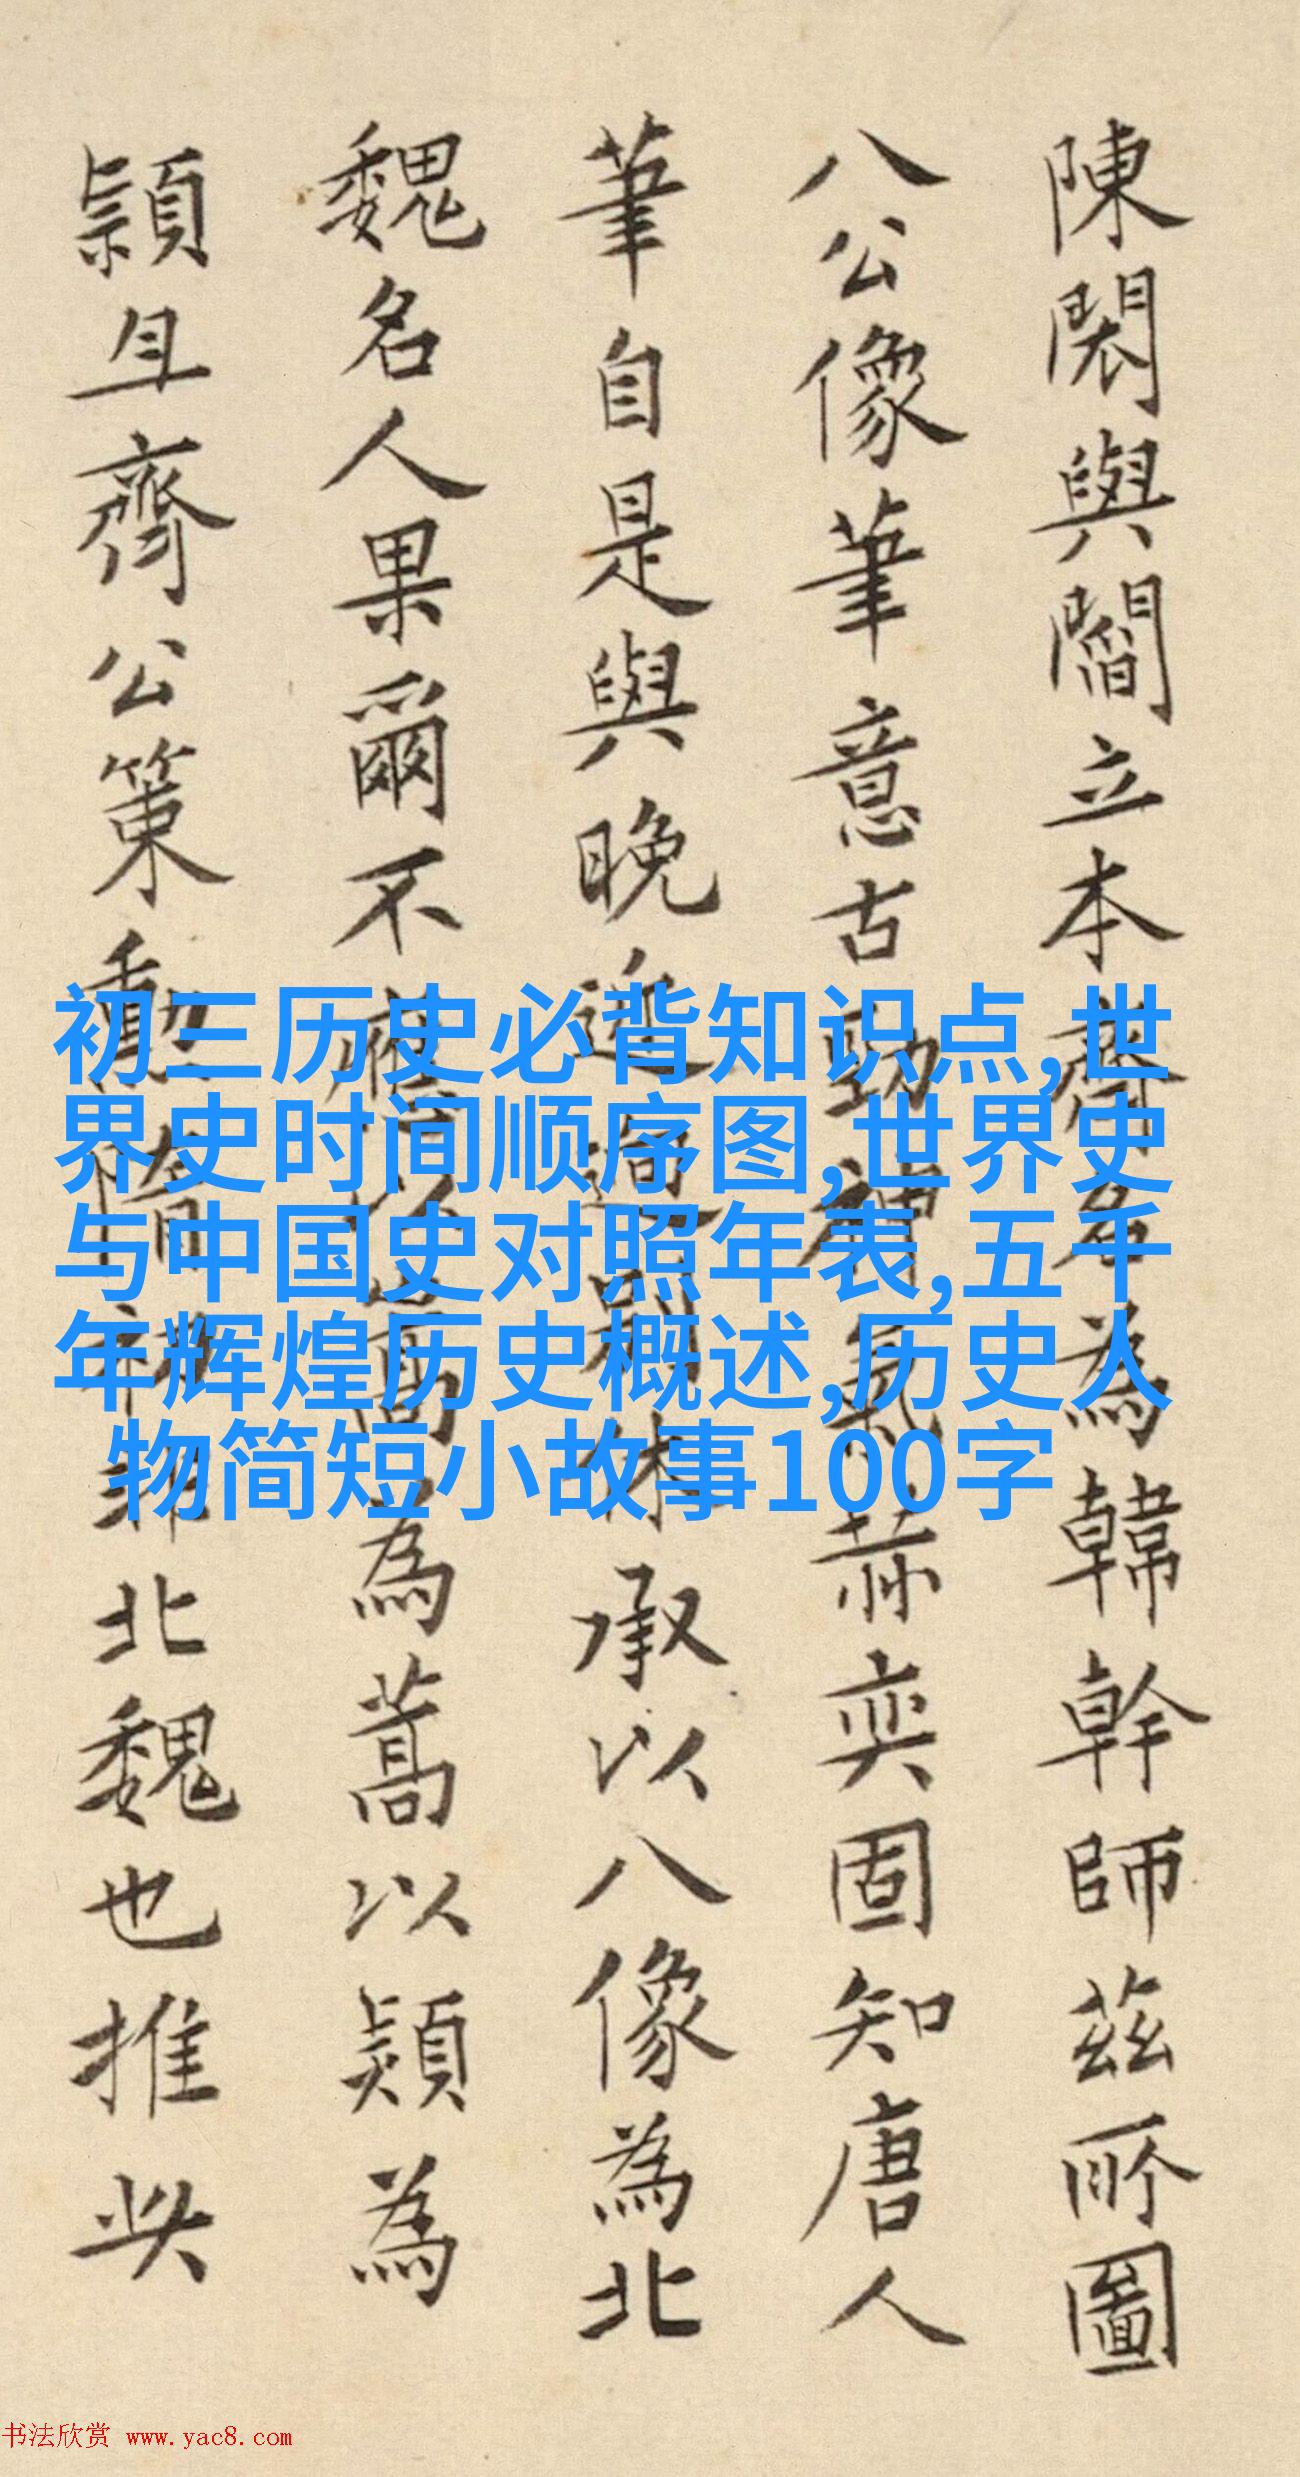 陳閎與閻立本齊名為韓幹師茲所圖
八公像筆意古勁神氣赫奕固知唐人
筆自是與晚近迥別休承以八像為北
魏名人果爾不應以為蒿以熲為
頴且齊公策勳隋初非北魏也推
初三历史必背知识点,世
界史时间顺序图,世界史
与中国史对照年表,五千
年辉煌历史概述,历史人
物简短小故事100字
书法欣赏 www.yac8.com